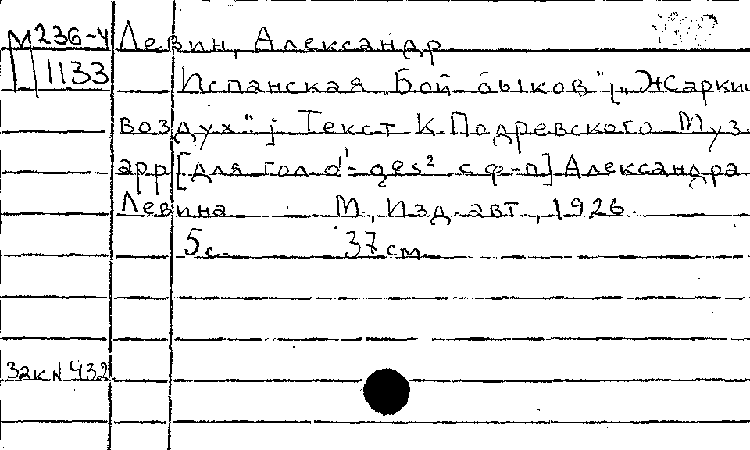 М 236-4 Левин, Александр
П 1133 Испанская Бой быков "[„Жаркий
воздух"]; Текст К. Подревского Муз
арр [для гол d¹-ges² с ф-п] Александра
Левина М, Изд. авт, 1926
5с. 37см
Зак № 432